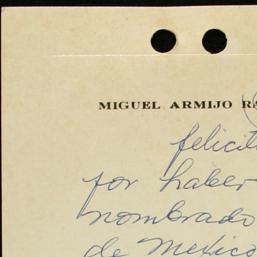 MIGUEL ARMIJO
por haber
nombrado
de Mexico